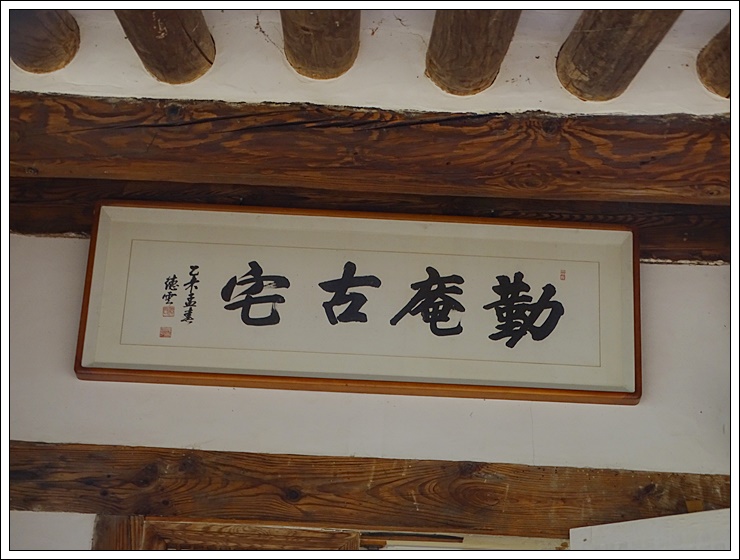 勤庵古宅
乙未孟春
德雲